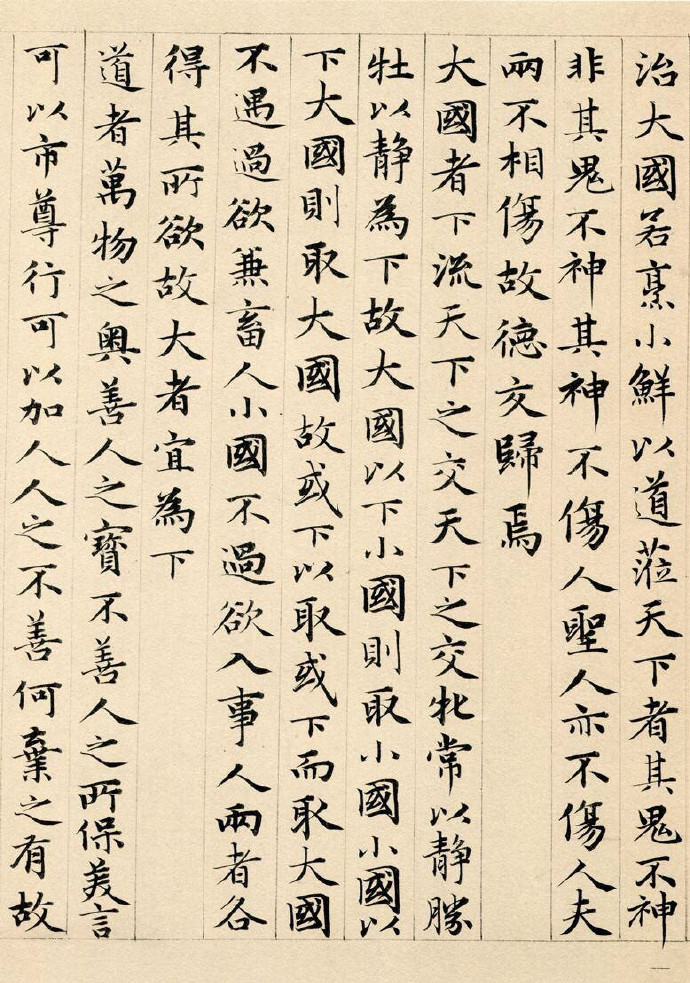 治大國若烹小鮮以道蒞天下者其鬼不神
非其鬼不神其神不傷人聖人亦不傷人夫
兩不相傷故德交歸焉
大國者下流天下之交天下之交牝常以静勝
牡以静為下故大國以下小國則取小國小國以
下大國則取大國故或下以取或下而取大國
不遇過欲兼畜人小國不過欲入事人兩者各
得其所欲故大者宜為下
道者萬物之奥善人之寶不善人之所保美言
可以市尊行可以加人人之不善何棄之有故